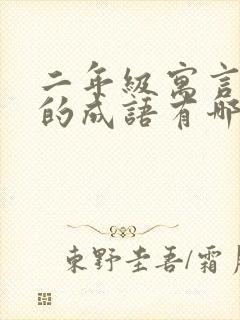 二年級寓言
的成語有哪
東野圭吾/霜月